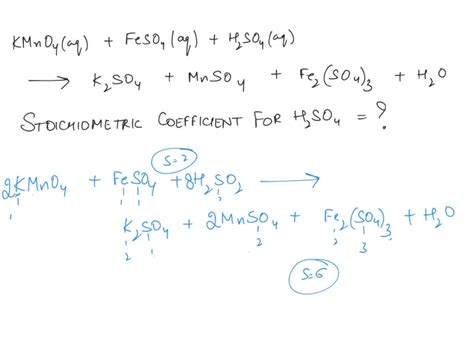 KMnO4(aq) + FeSO4(aq) + H2SO4(aq)
⟶ K2SO4 + MnSO4 + Fe2(SO4)3 + H2O
STOICHIOMETRIC COEFFICIENT FOR H2SO4 = ?
S=2
2KMnO4 + FeSO4 + 8H2SO2 ⟶
1 1 1
K2SO4 + 2MnSO4 + Fe2(SO4)3 + H2O
2 1 2 2 3
S=6